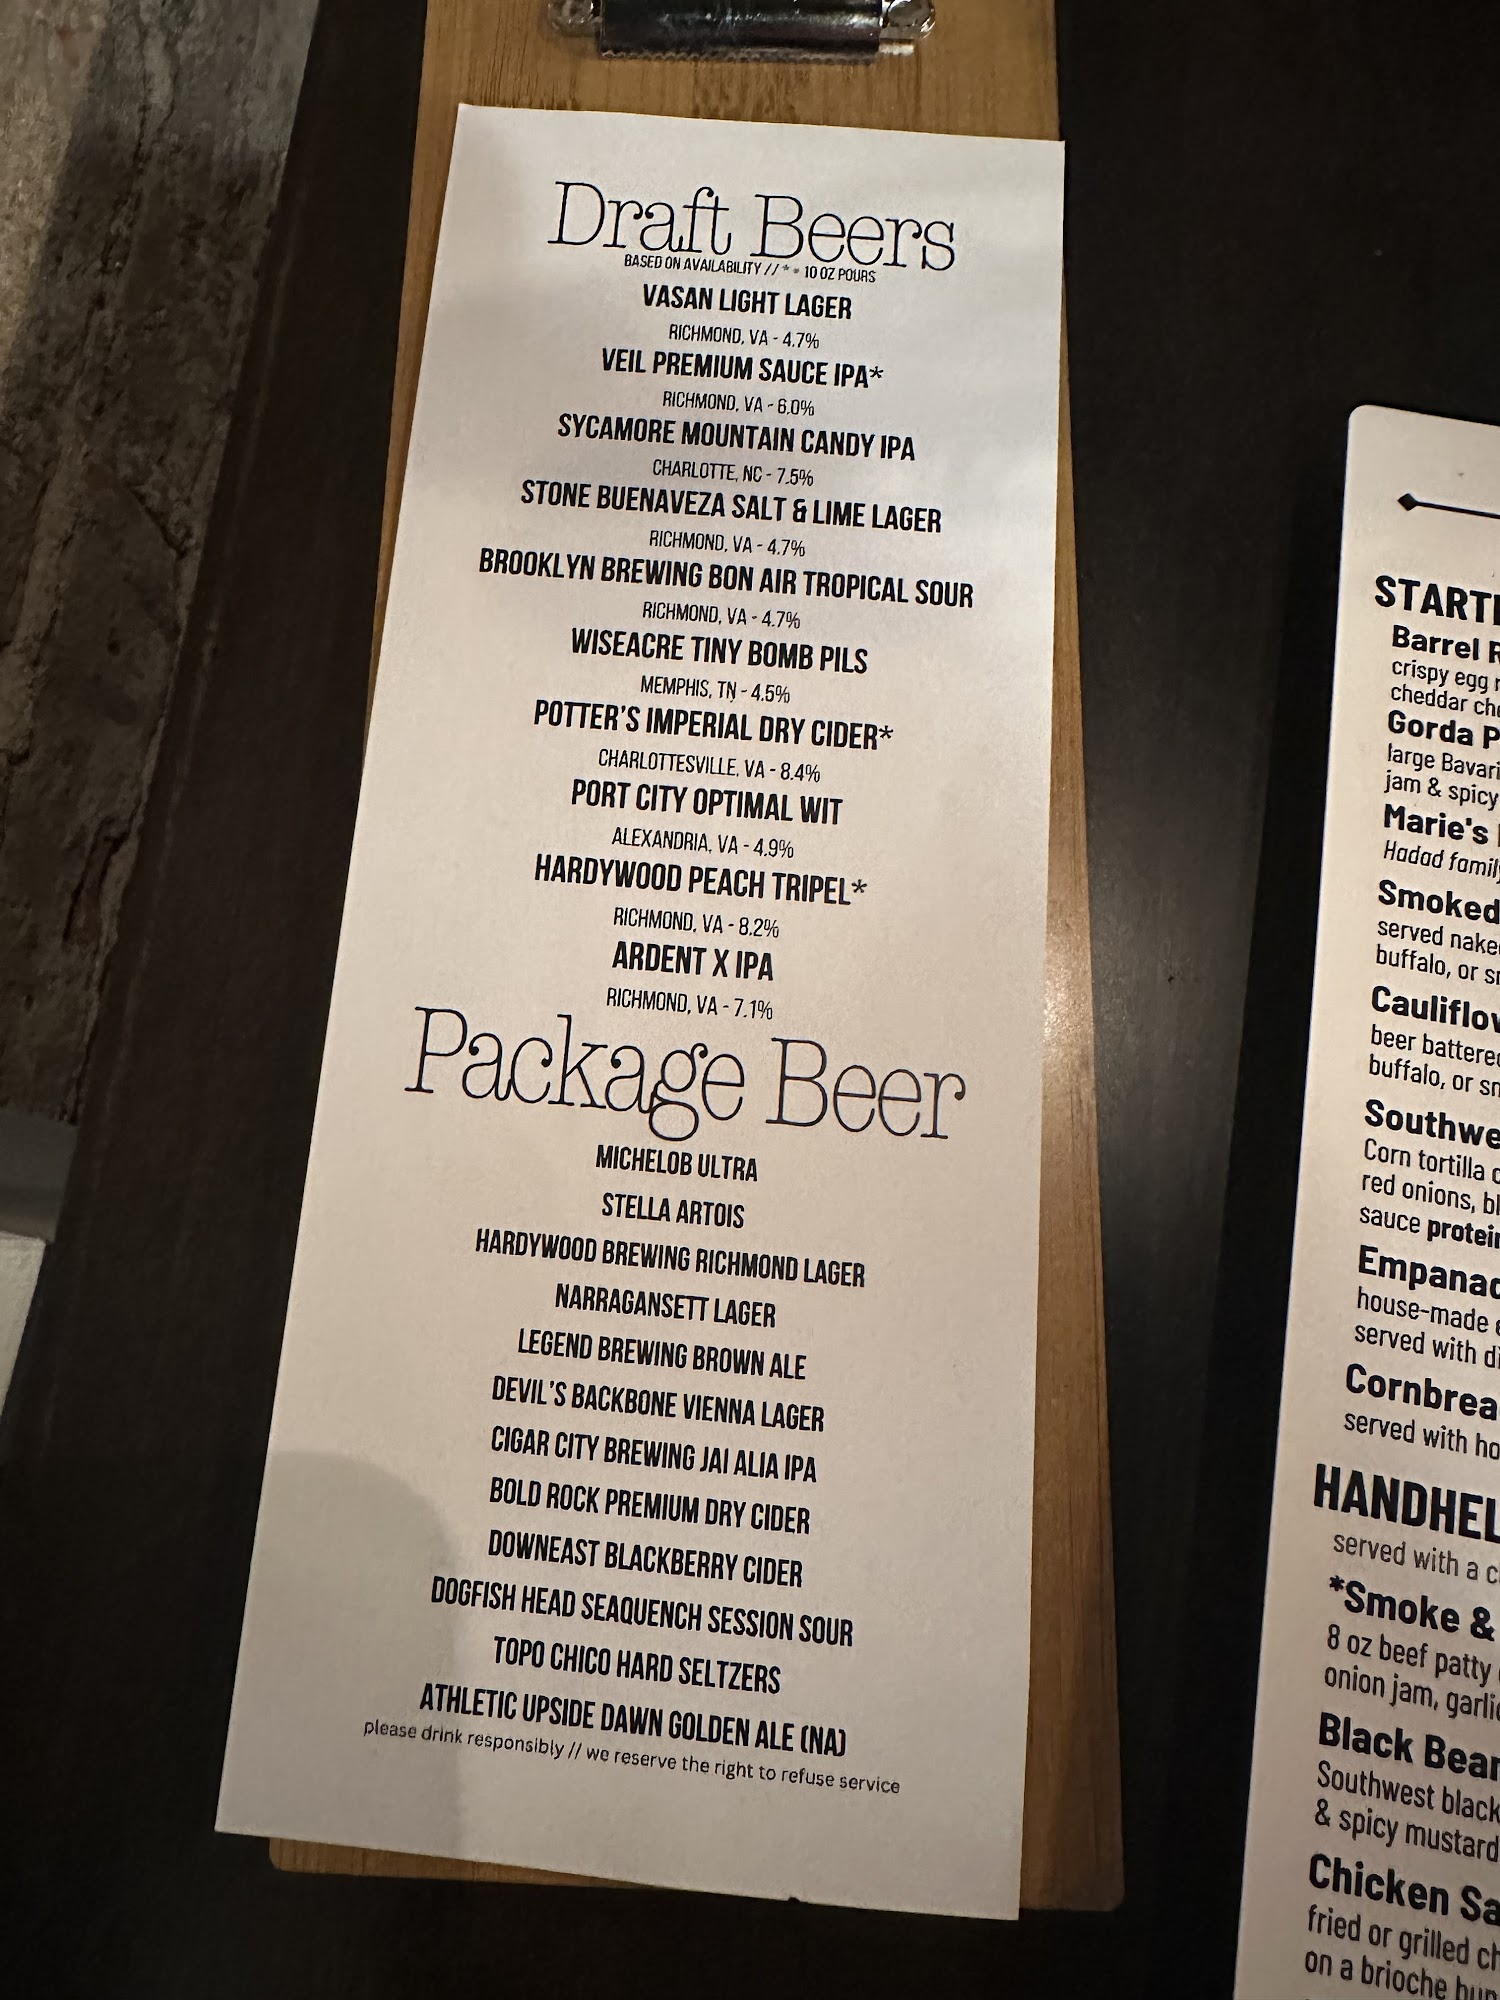 Draft Beers
BASED ON AVAILABILITY // * = 10 OZ POURS
VASAN LIGHT LAGER
RICHMOND, VA - 4.7%
VEIL PREMIUM SAUCE IPA*
RICHMOND, VA - 6.0%
SYCAMORE MOUNTAIN CANDY IPA
CHARLOTTE, NC - 7.5%
STONE BUENAVEZA SALT & LIME LAGER
RICHMOND, VA - 4.7%
BROOKLYN BREWING BON AIR TROPICAL SOUR
RICHMOND, VA - 4.7%
WISEACRE TINY BOMB PILS
MEMPHIS, TN - 4.5%
POTTER'S IMPERIAL DRY CIDER*
CHARLOTTESVILLE, VA - 8.4%
PORT CITY OPTIMAL WIT
ALEXANDRIA, VA - 4.9%
HARDYWOOD PEACH TRIPEL*
RICHMOND, VA - 8.2%
ARDENT X IPA
RICHMOND, VA - 7.1%
Package Beer
MICHELOB ULTRA
STELLA ARTOIS
HARDYWOOD BREWING RICHMOND LAGER
NARRAGANSETT LAGER
LEGEND BREWING BROWN ALE
DEVIL'S BACKBONE VIENNA LAGER
CIGAR CITY BREWING JAI ALIA IPA
BOLD ROCK PREMIUM DRY CIDER
DOWNEAST BLACKBERRY CIDER
DOGFISH HEAD SEAQUENCH SESSION SOUR
TOPO CHICO HARD SELTZERS
ATHLETIC UPSIDE DAWN GOLDEN ALE (NA)
please drink responsibly // we reserve the right to refuse service
STARTE
Barrel R
crispy egg r
cheddar che
Gorda P
large Bavari
jam & spicy
Marie's
Hadad family
Smoked
served nake
buffalo, or sm
Cauliflow
beer battered
buffalo, or sm
Southwe
Corn tortilla c
red onions, bl
sauce protein
Empanad
house-made e
served with di
Cornbrea
served with ho
HANDHEL
served with a c
*Smoke &
8 oz beef patty
onion jam, garlic
Black Bean
Southwest black
& spicy mustard
Chicken Sa
fried or grilled ch
on a brioche bun